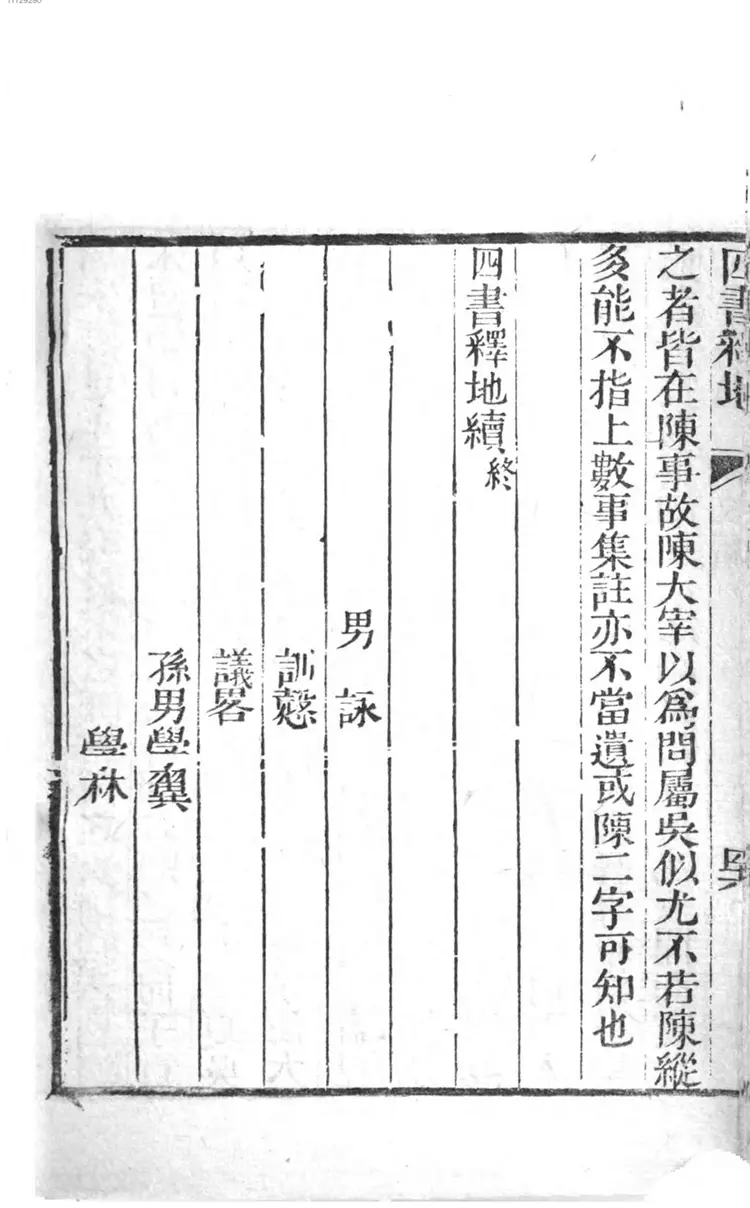 11129290
四書釋地
吳
之者皆在陳事故陳大宰以為問屬吳似尤不若陳縱
多能不指上數事集註亦不當遺或陳二字可知也
四書釋地續終
男 詠
訓慤
議畧
孫男學龔
學林